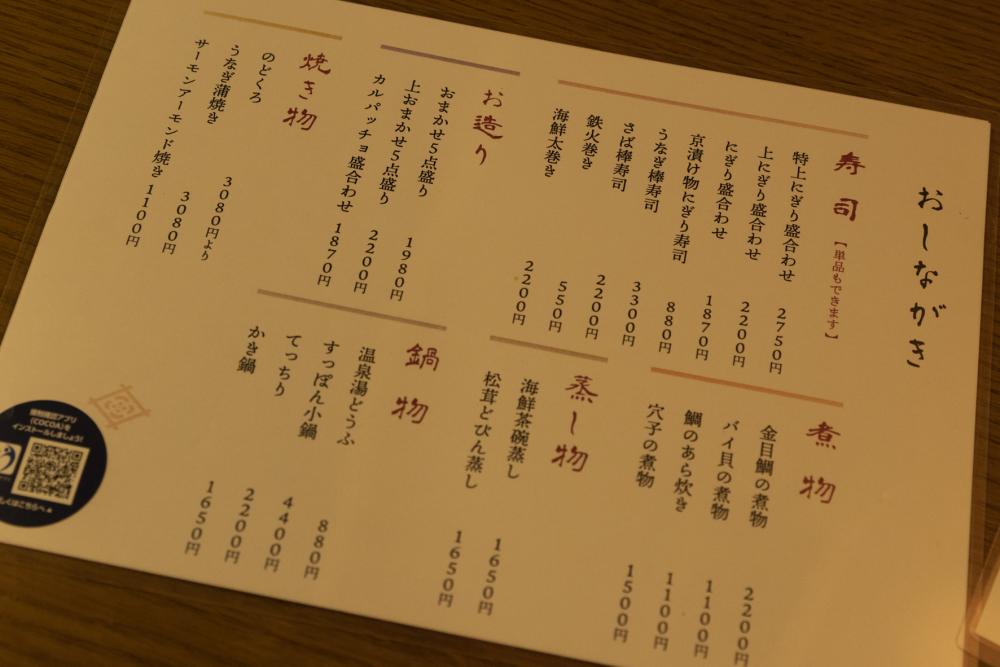 おしながき
寿司
【単品もできます】
特上にぎり盛合わせ 2750円
上にぎり盛合わせ 2200円
にぎり盛合わせ 1870円
京漬け物にぎり寿司 880円
うなぎ棒寿司 3300円
さば棒寿司 2200円
鉄火巻き 550円
海鮮太巻き 2200円
お造り
おまかせ5点盛り 1980円
上おまかせ5点盛り 2200円
カルパッチョ盛合わせ 1870円
焼き物
のどくろ 3080円より
うなぎ蒲焼き 3080円
サーモンアーモンド焼き 1100円
煮物
金目鯛の煮物 2200円
バイ貝の煮物 1100円
鯛のあら炊き 1100円
穴子の煮物 1500円
蒸し物
海鮮茶碗蒸し 1650円
松茸どびん蒸し 1650円
鍋物
温泉湯どうふ 880円
すっぽん小鍋 4400円
てっちり 2200円
かき鍋 1650円
接触確認アプリ
(COCOA)を
インストールしましょう!
しくはこちらへ